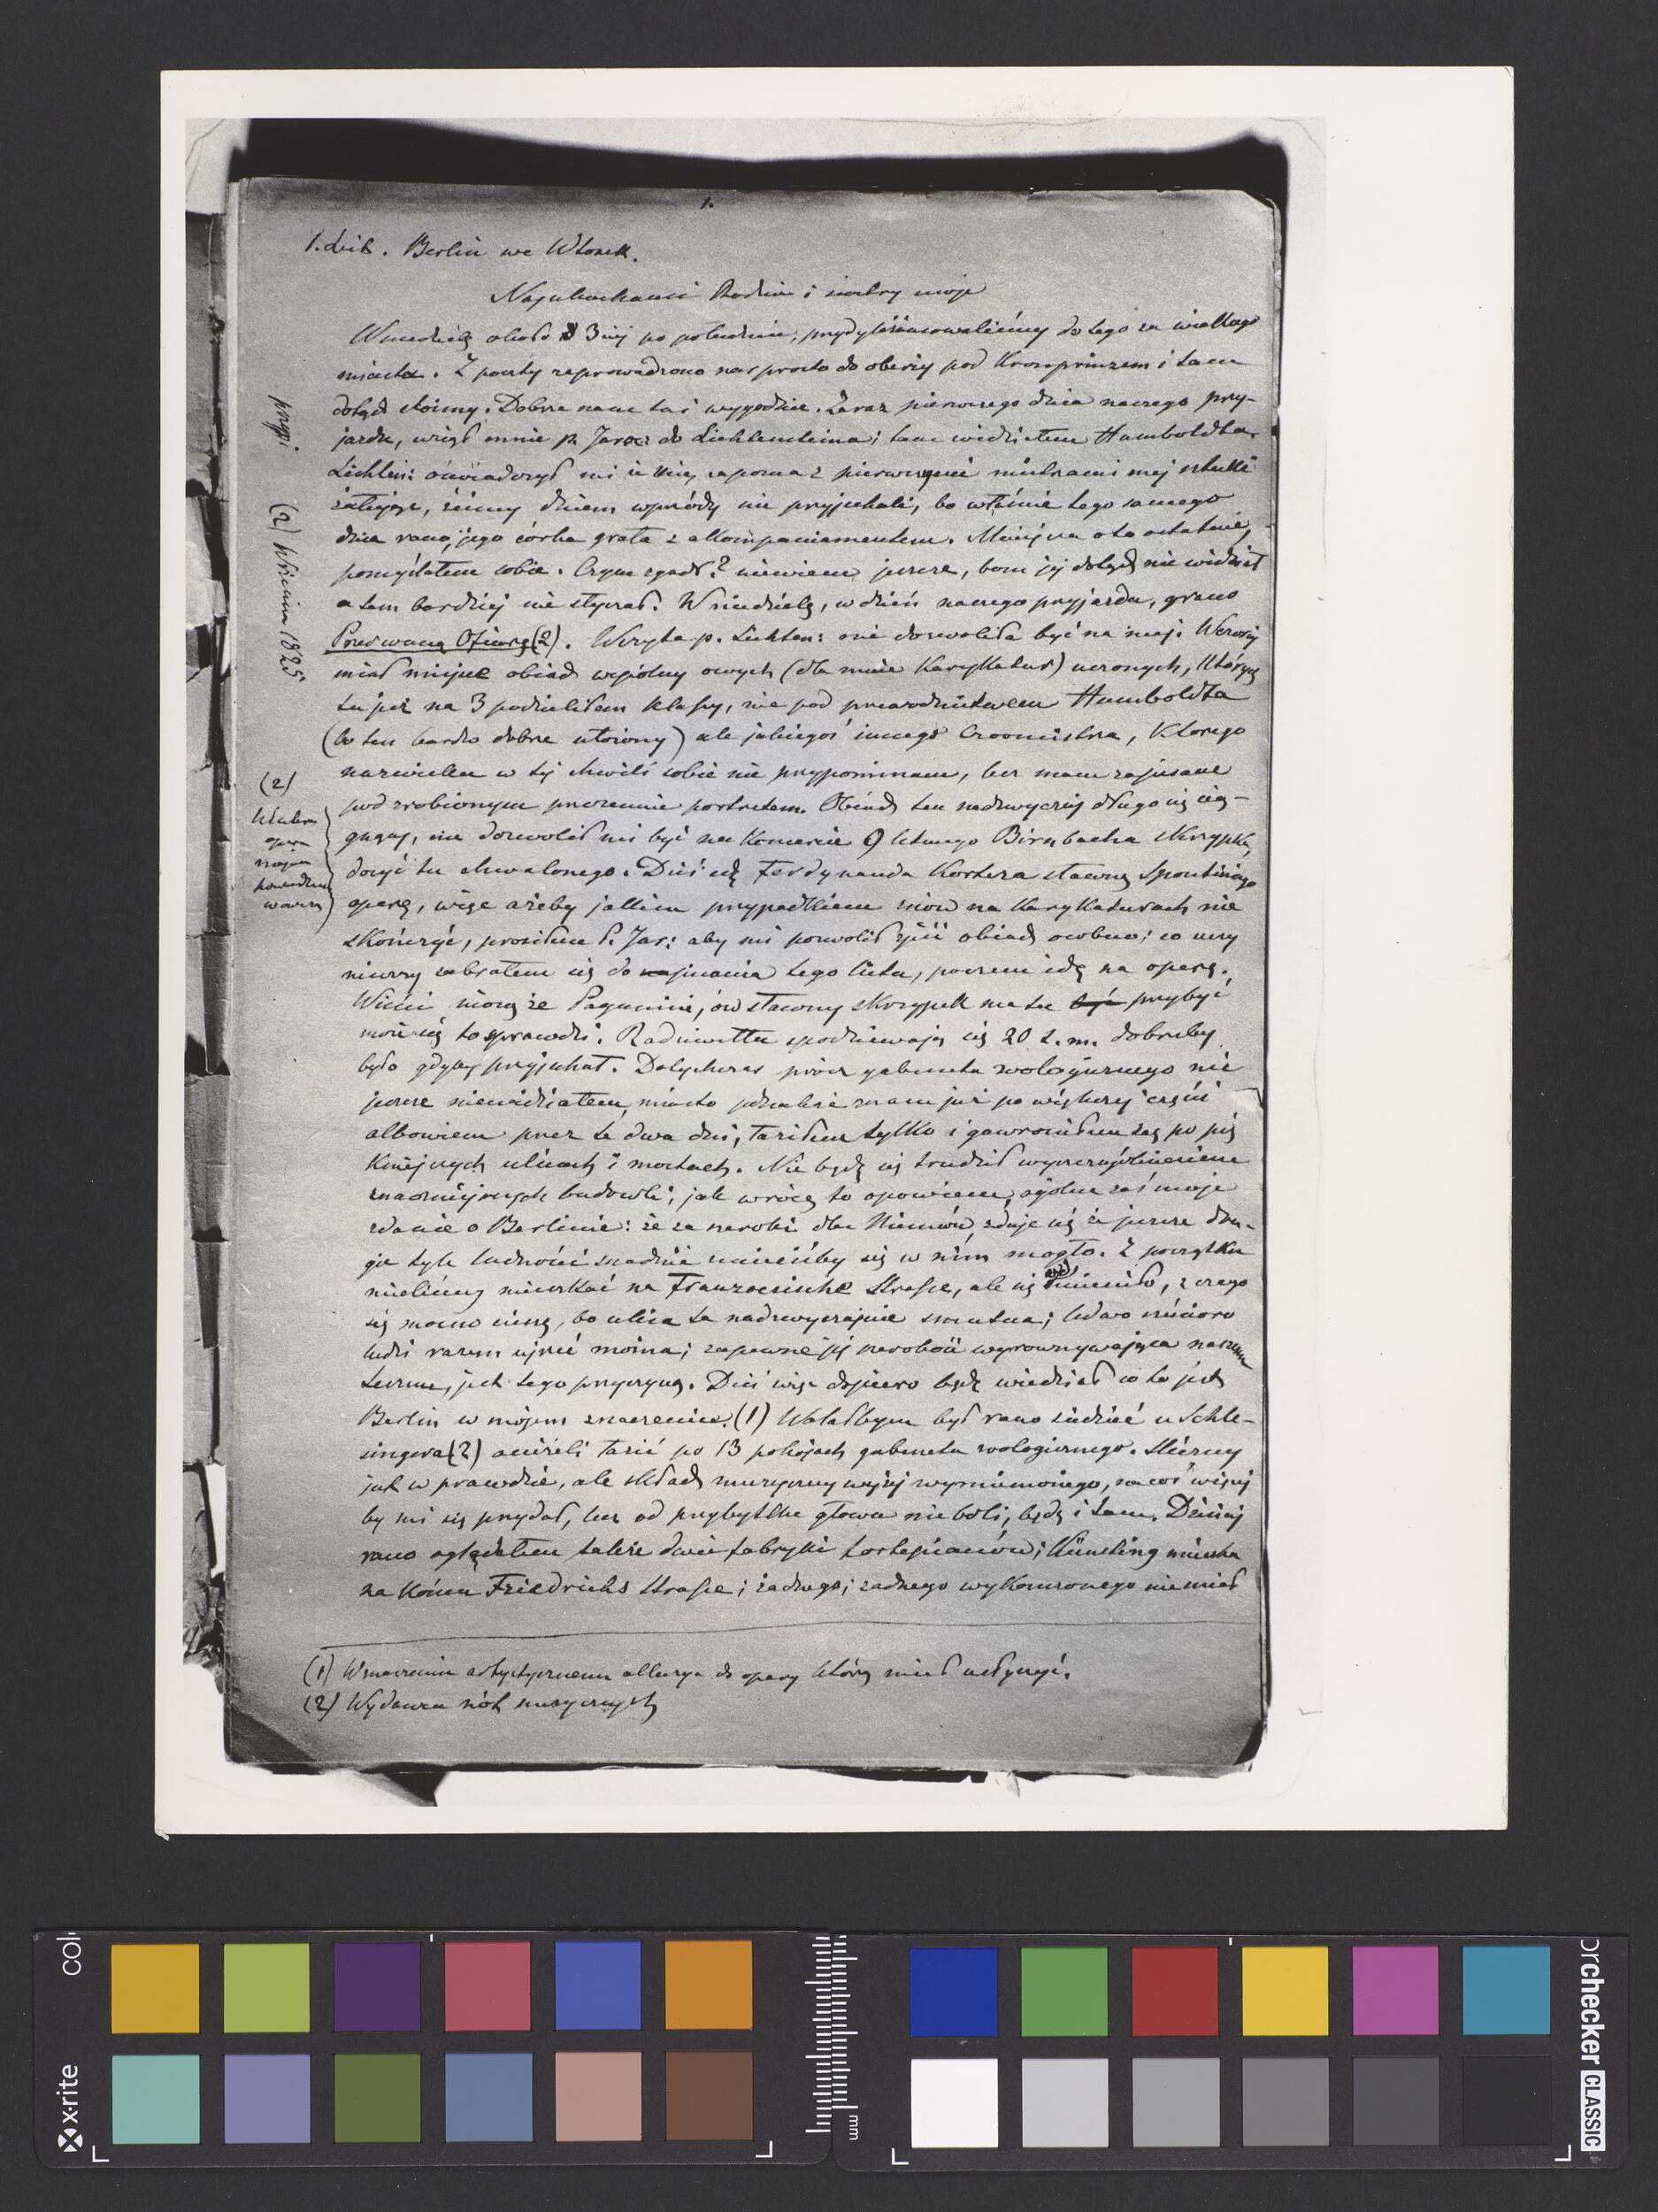 1.
1. List. Berlin we Wtorek.
Najukochańsi Rodzice i siostry moje
W niedzielę około 3iej po południu, przydyliżansowaliśmy do tego za wielkiego
miasta. Z poczty zaprowadzono nas prosto do oberży pod Kronprinzem i tam
dotąd stoimy. Dobrze nam tu i wygodnie. Zaraz pierwszego dnia naszego przy-
jazdu, wziął mnie p. Jaroc: do Lichtensteina; tam widziałem Humboldta.
Lichten: oświadczył mi iż mię zapozna z pierwszymi mistrzami mej sztuki
żałując, żeśmy dniem wprzódy nie przyjechali, bo właśnie tego samego
dnia rano, jego córka grała z akkompaniamentem. Mniejsza o to ostatnie,
pomyślałem sobie. Czym zgadł? niewiem jeszcze, bom jej dotąd nie widział
a tem bardziej nie słyszał. W niedzielę, w dzień naszego przyjazdu, grano
Przerwaną Ofiarę (2). Wizyta p. Lichten: nie dozwoliła być na niej. Wczoraj
miał miejsce obiad wspólny owych (dla mnie Karykatur) uczonych, których
tu już na 3 podzieliłem klasy, nie pod przewodnictwem Humboldta
(bo ten bardzo dobrze ułożony) ale jakiegoś innego Croomistrza, Którego
nazwiska w tej chwili sobie nie przypominam, lecz mam zapisane
pod zrobionym przezemnie portretem. Obiad ten nadzwyczaj długo się cią-
gnący, nie dozwolił mi być na Koncercie 9 letniego Birnbacha skrzypka,
dosyć tu chwalonego. Dziś idę Ferdynanda Korteza sławną Spontiniego
operę, więc ażeby jakim przypadkiem znów na Karykaturach nie
skończyć, prosiłem P. Jar: aby mi pozwolił zjeść obiad osobno; co uczy
niwszy zabrałem się do napisania tego listu, poczem idę na operę.
Wieści niosą że Paganini, ów sławny skrzypek ma tu być przybyć
może się to sprawdzi. Radziwiłła spodziewają się 20 t. m. dobrzeby
było gdyby przyjechał. Dotychczas prócz gabinetu zoologicznego nic
jeszcze niewidziałem, miasto jednakże znam już po większej części
albowiem przez te dwa dni, łaziłem tylko i gawroniłem się po pię
kniejszych ulicach i mostach. Nie będę się trudził wyszczególnieniem
znaczniejszych budowli; jak wrócę to opowiem, ogólne zaś moje
zdanie o Berlinie: że za szeroki dla Niemców, zdaje się że jeszcze dru-
gie tyle ludności snadnie zmieścićby się w nim mogło. Z początku
mieliśmy mieszkać na Französische Strasse, ale się zmieniło, z czego
się mocno cieszę, bo ulica ta nadzwyczajnie smutna; ledwo sześcioro
ludzi razem ujrzeć można; zapewne jej szerokość wyrównywająca naszemu
Lesznu, jest tego przyczyną. Dziś więc dopiero będę wiedział co to jest
Berlin w mojem znaczeniu. (1) Wolałbym był rano siedzieć u Schle-
singera (2) aniżeli łazić po 13 pokojach gabinetu zoologicznego. Śliczny
jak w prawdzie, ale skład muzyczny wyżej wymienionego, na coś więcej
by mi się przydał, lecz od przybytku głowa nie boli, będę i tam. Dzisiaj
rano oglądałem także dwie fabryki fortepianów; Künsling mieszka
na Końcu Friedrichs Strasse; żadnego; żadnego wykończonego nie miał
(1) W znaczeniu artystycznem alluzya do opery którą miał usłyszyć.
(2) Wydawca nót muzycznych
przyp.
(2) Września 1828
(2)
opera